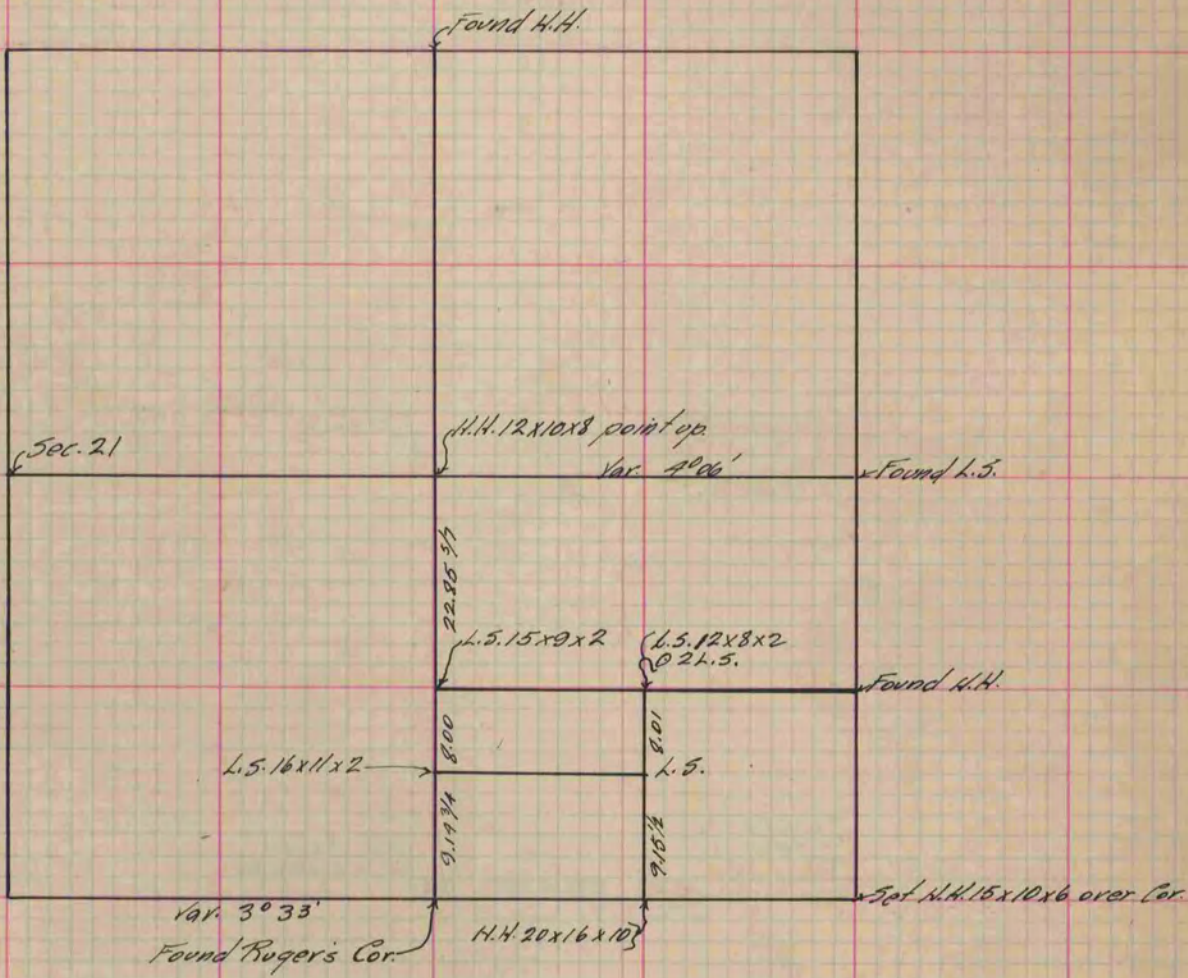 Found H.H.
Sec. 21
H.H. 12x10x8 point up.
Var. 4°06'
Found L.S.
22.85 5/7
L.S. 15x9x2
L.S. 12x8x2
⊙ 2 L.S.
Found H.H.
8.00
8.01
L.S. 16x11x2
L.S.
9.14 3/4
9.15 1/2
Set H.H. 15x10x6 over Cor.
Var. 3° 33'
H.H. 20x16x10
Found Ruger's Cor.